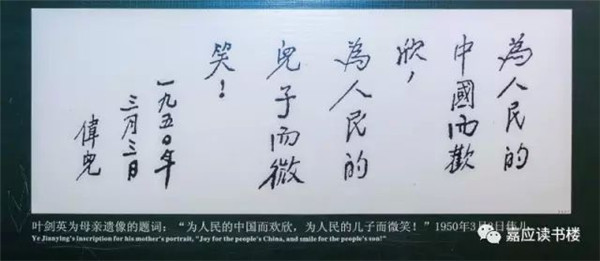 為人民的
中國而歡
欣，
為人民的
兒子而微
笑！
一九五〇年
三月三日
偉兒
叶剑英为母亲遗像的题词：“为人民的中国而欢欣，为人民的儿子而微笑！”1950年3月3日伟儿
Ye Jianying's inscription for his mother's portrait, "Joy for the people's China, and smile for the people's son!"
嘉应读书楼